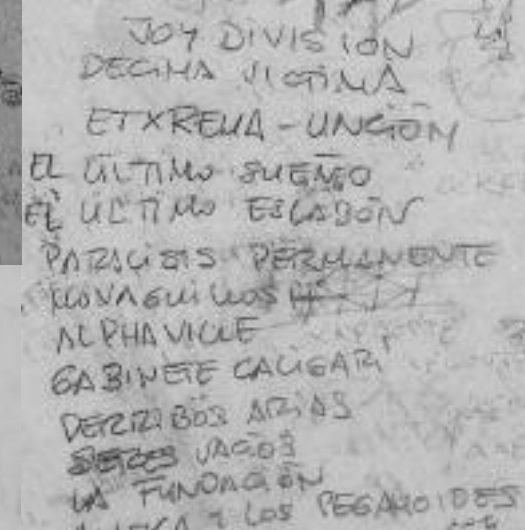 JOY DIVISION
DECIMA VICTIMA
ETXREMA-UNCIÓN
EL ÚLTIMO SUEÑO
EL ÚLTIMO ESLABÓN
PARALISIS PERMANENTE
MONAGUILLOS
ALPHAVILLE
GABINETE CALIGARI
DERRIBOS ARIAS
SERES VACIOS
LA FUNDACIÓN
Y LOS PEGAMOIDES